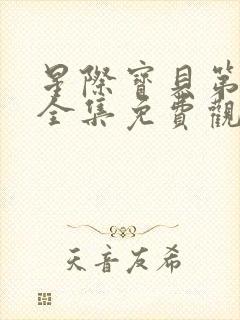 星際寶貝第
全集免費觀
天音友希